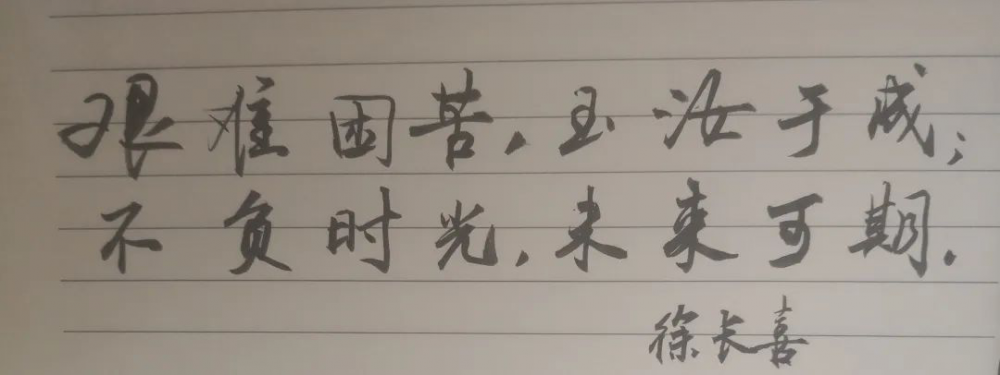 艰难困苦，玉汝于成；
不负时光，未来可期．
徐长喜